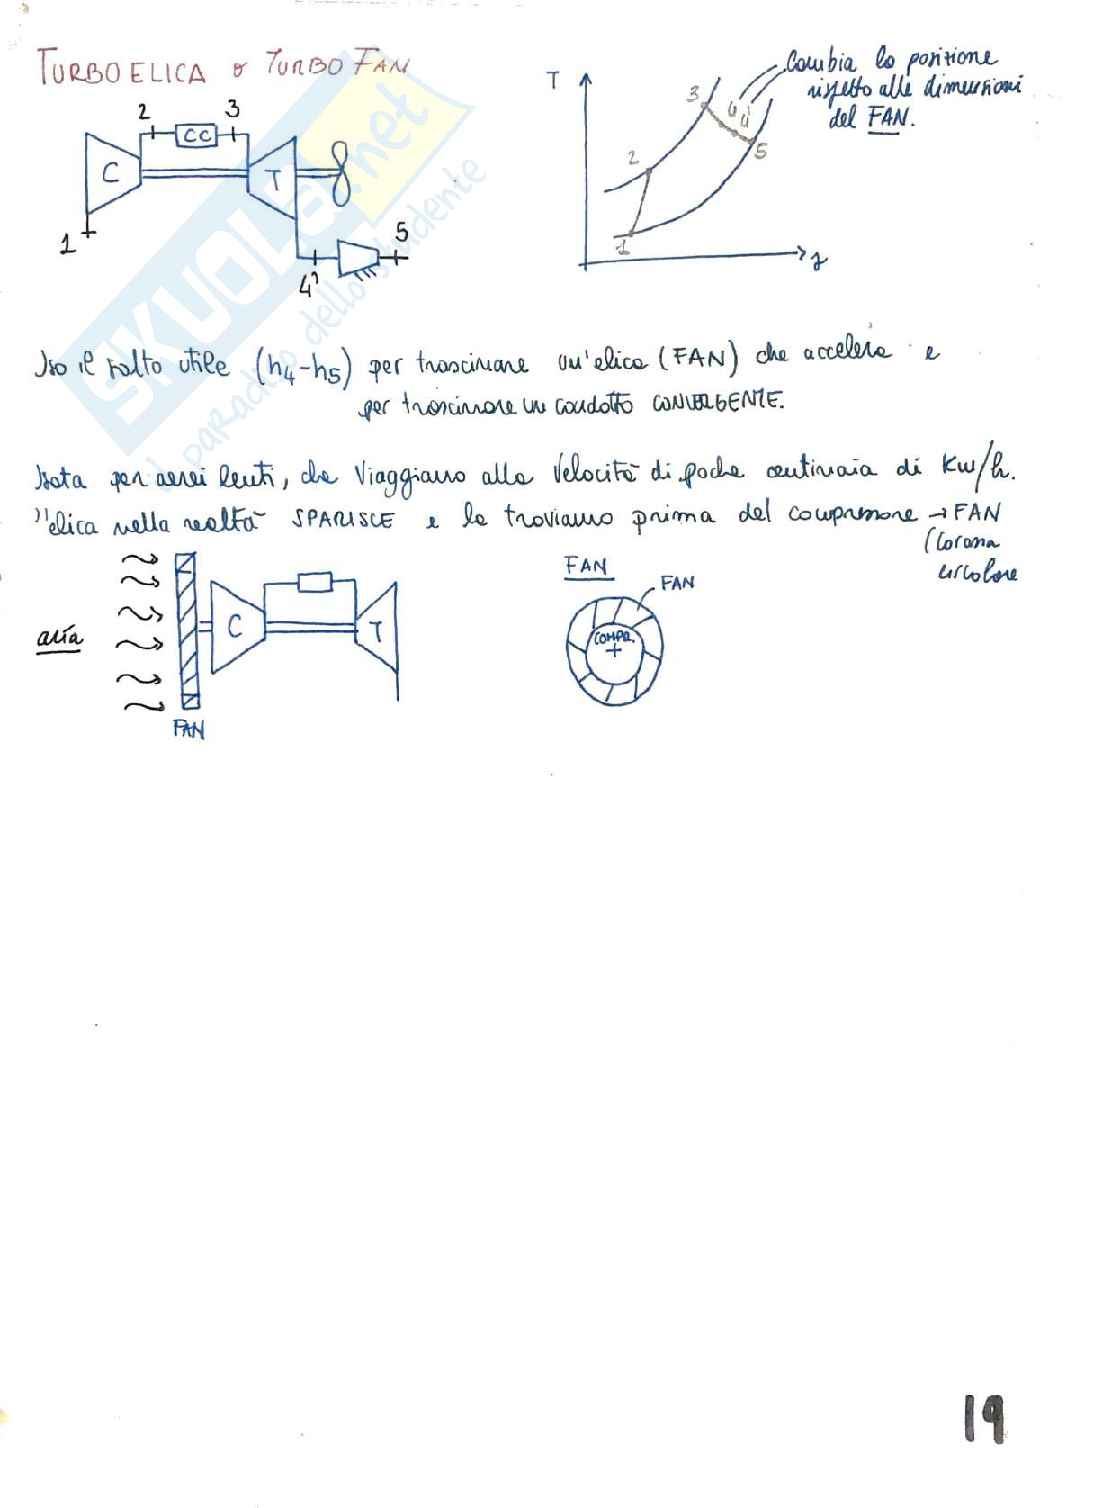 TURBOELICA o TURBO FAN
T
Cambia la posizione
rispetto alle dimensioni
del FAN.
2 3
CC
C
T
1
4'
5
3
4 4'
2
5
1
s
Uso il salto utile (h4-h5) per trascinare un'elica (FAN) che accelera e
per trascinare un condotto CONVERGENTE.
Usata per aerei lenti, che viaggiano alla velocità di poche centinaia di Kw/h.
l'elica nella realtà SPARISCE e la troviamo prima del compressore → FAN
(Corona
circolare
FAN
FAN
COMPR.
aria
C
T
FAN
19
SKUOLA.net
il paradiso dello studente